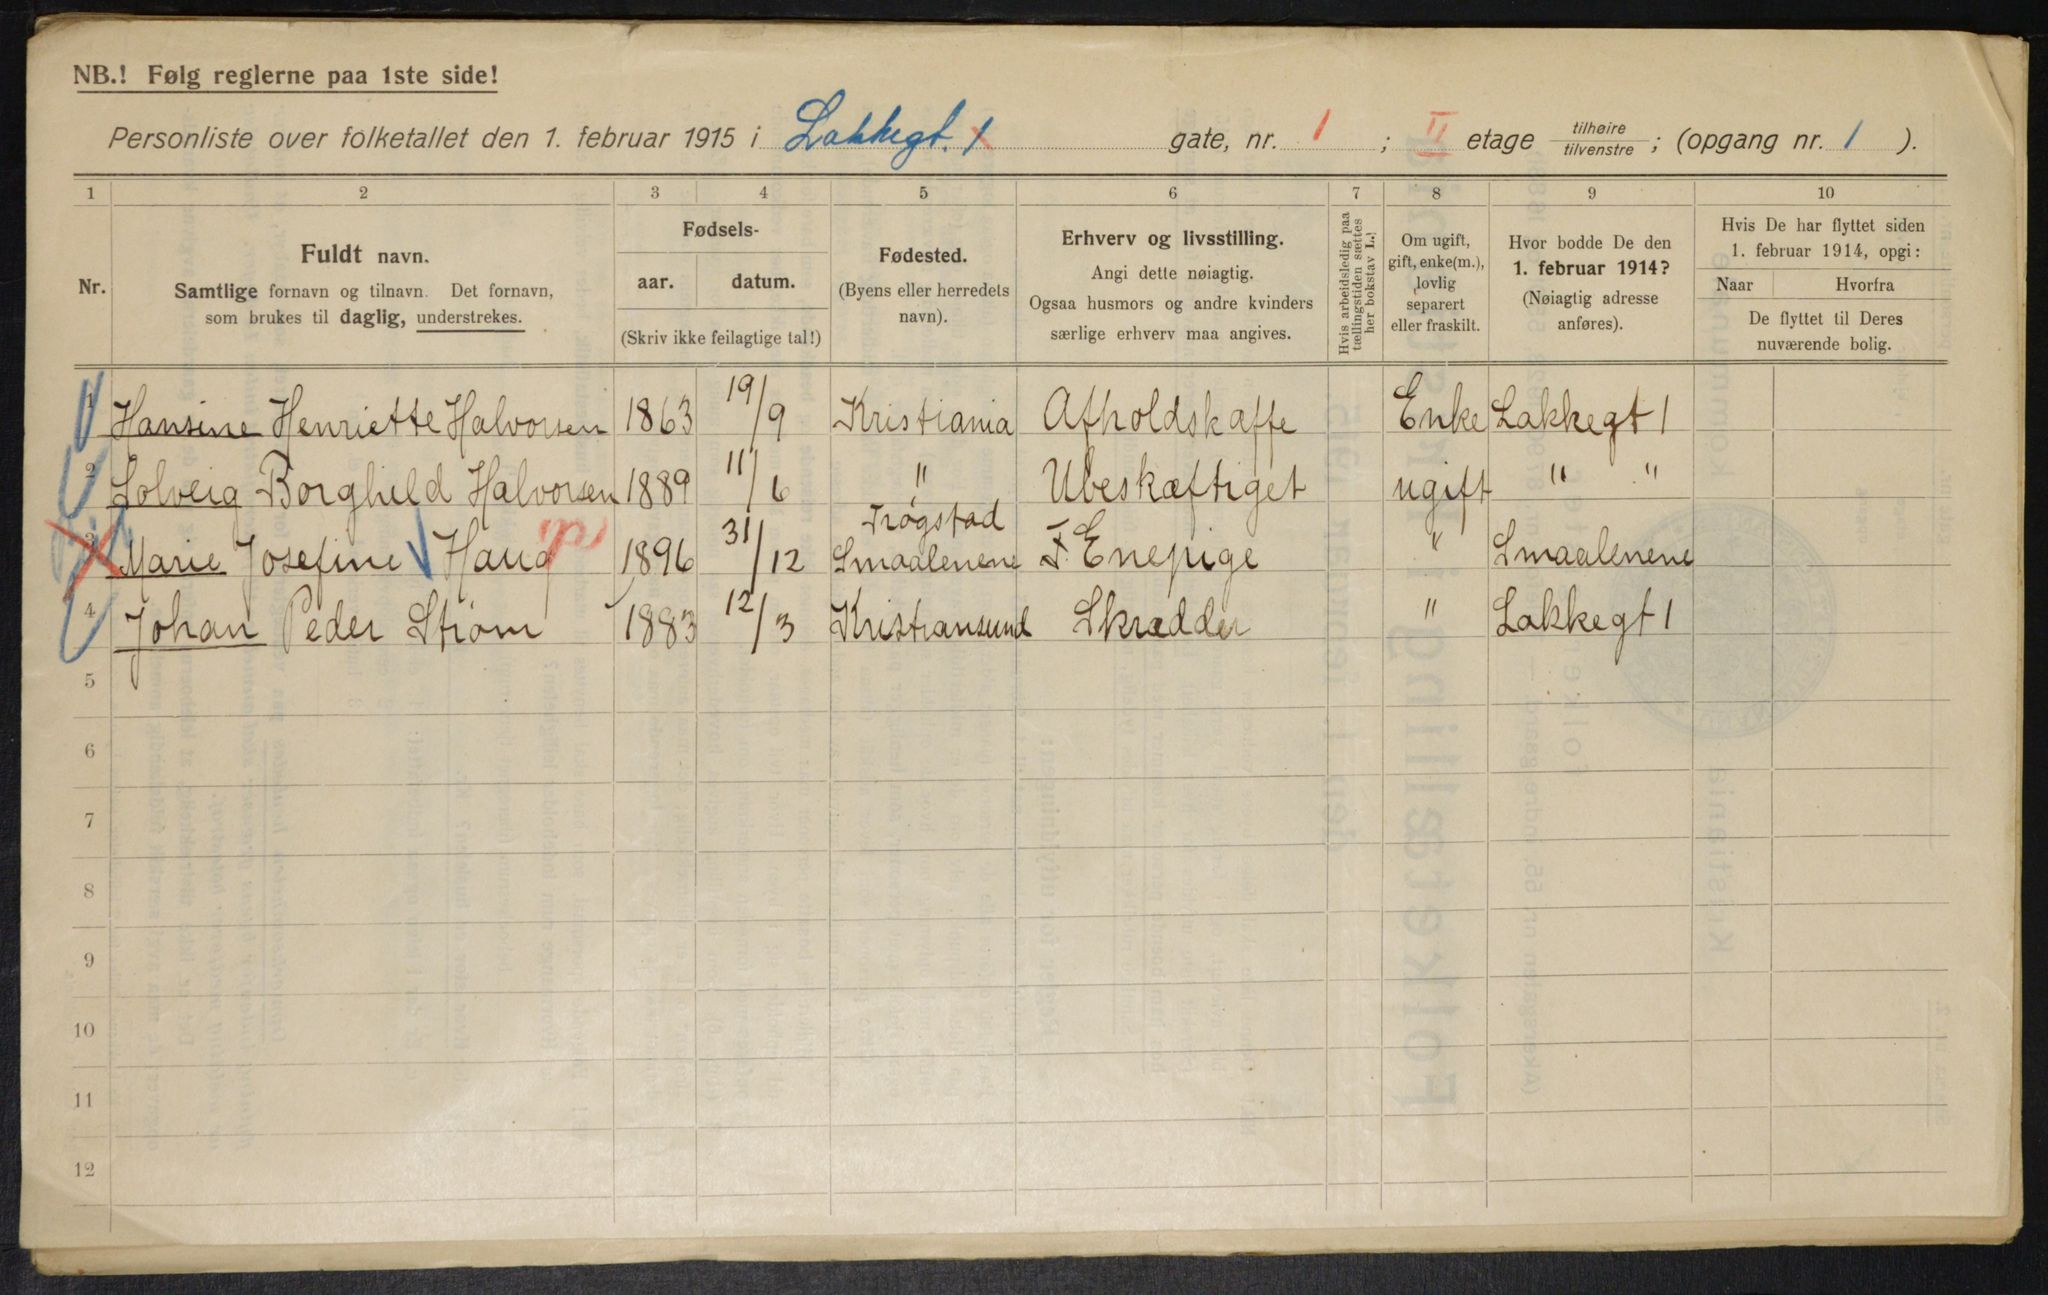 NB.! Følg reglerne paa 1ste side!
Personliste over folketallet den 1. februar 1915 i Lakkegt. 1 gate, nr. 1 ; II etage tilhøire tilvenstre ; (opgang nr. 1 ).
1 2 3 4 5 6 7 8 9 10
Nr.
Fuldt navn.
Samtlige fornavn og tilnavn. Det fornavn,
som brukes til daglig, understrekes.
Fødsels-
aar. datum.
(Skriv ikke feilagtige tal!)
Fødested.
(Byens eller herredets
navn).
Erhverv og livsstilling.
Angi dette nøiagtig.
Ogsaa husmors og andre kvinders
særlige erhverv maa angives.
Hvis arbeidsledig paa
tællingstiden sættes
her bokstav L.)
Om ugift,
gift, enke(m.),
lovlig
separert
eller fraskilt.
Hvor bodde De den
1. februar 1914?
(Nøiagtig adresse
anføres).
Hvis De har flyttet siden
1. februar 1914, opgi:
Naar Hvorfra
De flyttet til Deres
nuværende bolig.
1 Hansine Henriette Halvorsen 1863 19/9 Kristiania Afholdskaffe Enke Lakkegt 1
2 Solveig Borghild Halvorsen 1889 11/6 " Ubeskæftiget ugift " "
3 Marie Josefine Haug 1896 31/12 Trøgstad Smaalenene T. Enepige " Smaalenene
4 Johan Peder Strøm 1883 12/3 Kristiansund Skrædder " Lakkegt 1
5
6
7
8
9
10
11
12